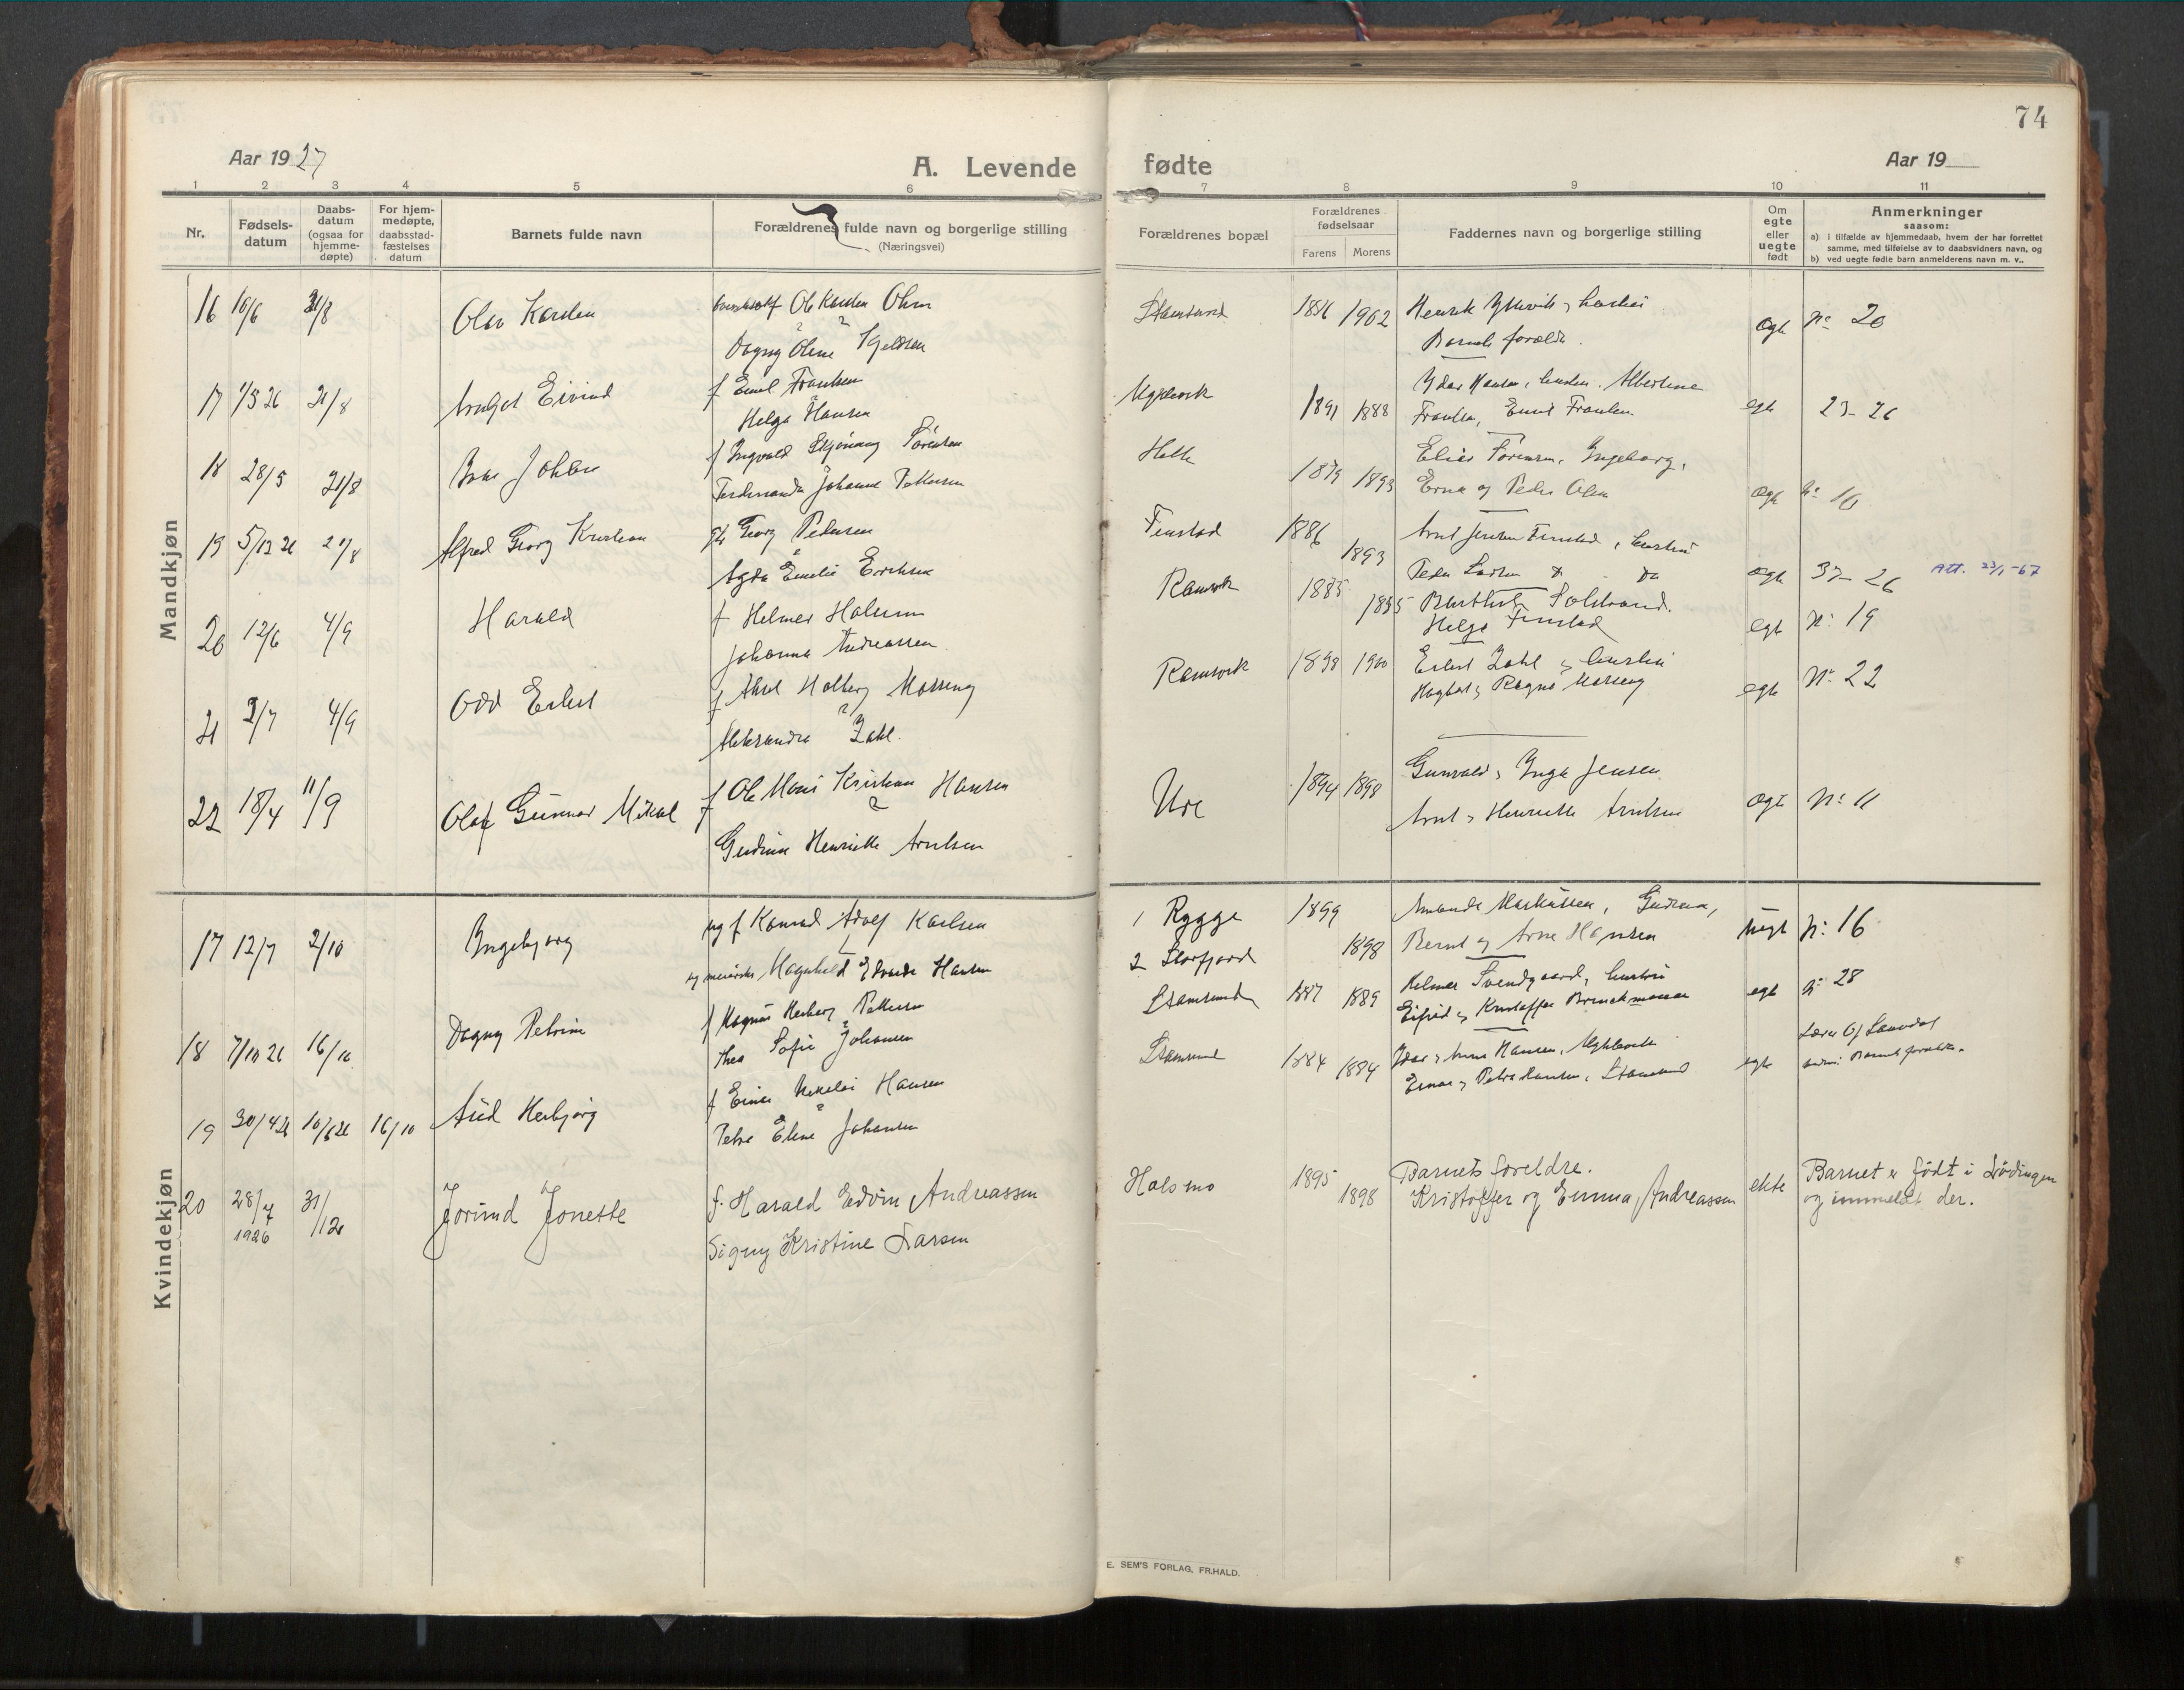 74
Aar 1927
A. Levende fødte
Aar 19
1 2 3 4 5 6 7 8 9 10 11
Nr.
Fødsels-
datum
Daabs-
datum
(ogsaa for
hjemme-
døpte)
For hjem-
medøpte,
daabsstad-
fæstelses
datum
Barnets fulde navn
Forældrenes fulde navn og borgerlige stilling
(Næringsvei)
Forældrenes bopæl
Forældrenes
fødselsaar
Farens Morens
Faddernes navn og borgerlige stilling
Om
egte
eller
uegte
født
Anmerkninger
saasom:
a) i tilfælde av hjemmedaab, hvem der har forrettet
samme, med tilføielse av to daabsvidners navn, og
b) ved uegte fødte barn anmelderens navn m. v..
Mandkjøn
16 10/6 21/8 Olav Karsten Ole Karsten Olsen Stamsund 1902 Henrik
Dagny Oline Barnets foreldre. egte No 20
17 1/5 26 21/8 Eivind f Emil Frantsen 1891 1888 Hansen, hustru. Albertine
Helga Hansen Frantsen, Emil Frantsen egte 23-26
18 28/5 21/8 f Ingvald Sørensen Holle 1879 1893 Elias Sørensen, Ingeborg,
Ferdinanda Johanne Pettersen Erna og Peder Olsen egte No 10
19 5/12 26 21/8 Alfred Georg Kristian Georg Pedersen Finstad 1886 1893 Arnt Jensen Finstad, hustru
Agda Emelie Eriksen Peder Larsen do egte 37-26 Att. 23/1-67
20 12/6 4/9 Harald f Helmer Halsen Ramsvik 1885 Solstrand.
Johanna Andreassen Helga Finstad egte No 19
21 2/7 4/9 Odd Erlert f Aksel Holberg Masseng Ramsvik 1898 1900 Zahl og hustru
Aleksandra Zahl. Hagbart og Ragna Masseng egte No 22
22 18/4 11/9 Olaf Gunnar Mikal f Ole Kristian Hansen Ure 1894 1898 Gunvald og Inga Jensen
Gudrun Henriette Arntsen Arnt og Henriette Arntsen egte No 11
Kvindekjøn
17 12/7 2/10 Ingebjørg ug f Konrad Adolf Karlsen 1 Rygge 1899 Markussen, Gudrun,
Magnhild Edvarda Hansen 2 Storfjord 1898 Bernt og Arne Hansen uegt No 16
18 7/10 26 16/10 Dagny Petrine f Magnus Herberg Pettersen Stamsund 1887 1889 Helmer Svendgaard, hustru
Thea Sofie Johansen Eifrid og Kristoffer Brinckmann egte No 28
19 30/4 26 10/6 26 16/10 Aud Herbjørg f Einar Nikolai Hansen Stamsund 1884 1884 Anna Hansen,
Petra Eline Johansen Einar og Petra Hansen, Stamsund egte Barnets foreldre.
20 28/7 1926 31/12 Jorund Jonette f. Harald Edvin Andreassen Halsmo 1895 1898 Barnets foreldre. ekte Barnet er født i Lødingen
Signy Kristine Larsen Kristoffer og Emma Andreassen og innmeldt der.
E. SEM'S FORLAG, FR.HALD.